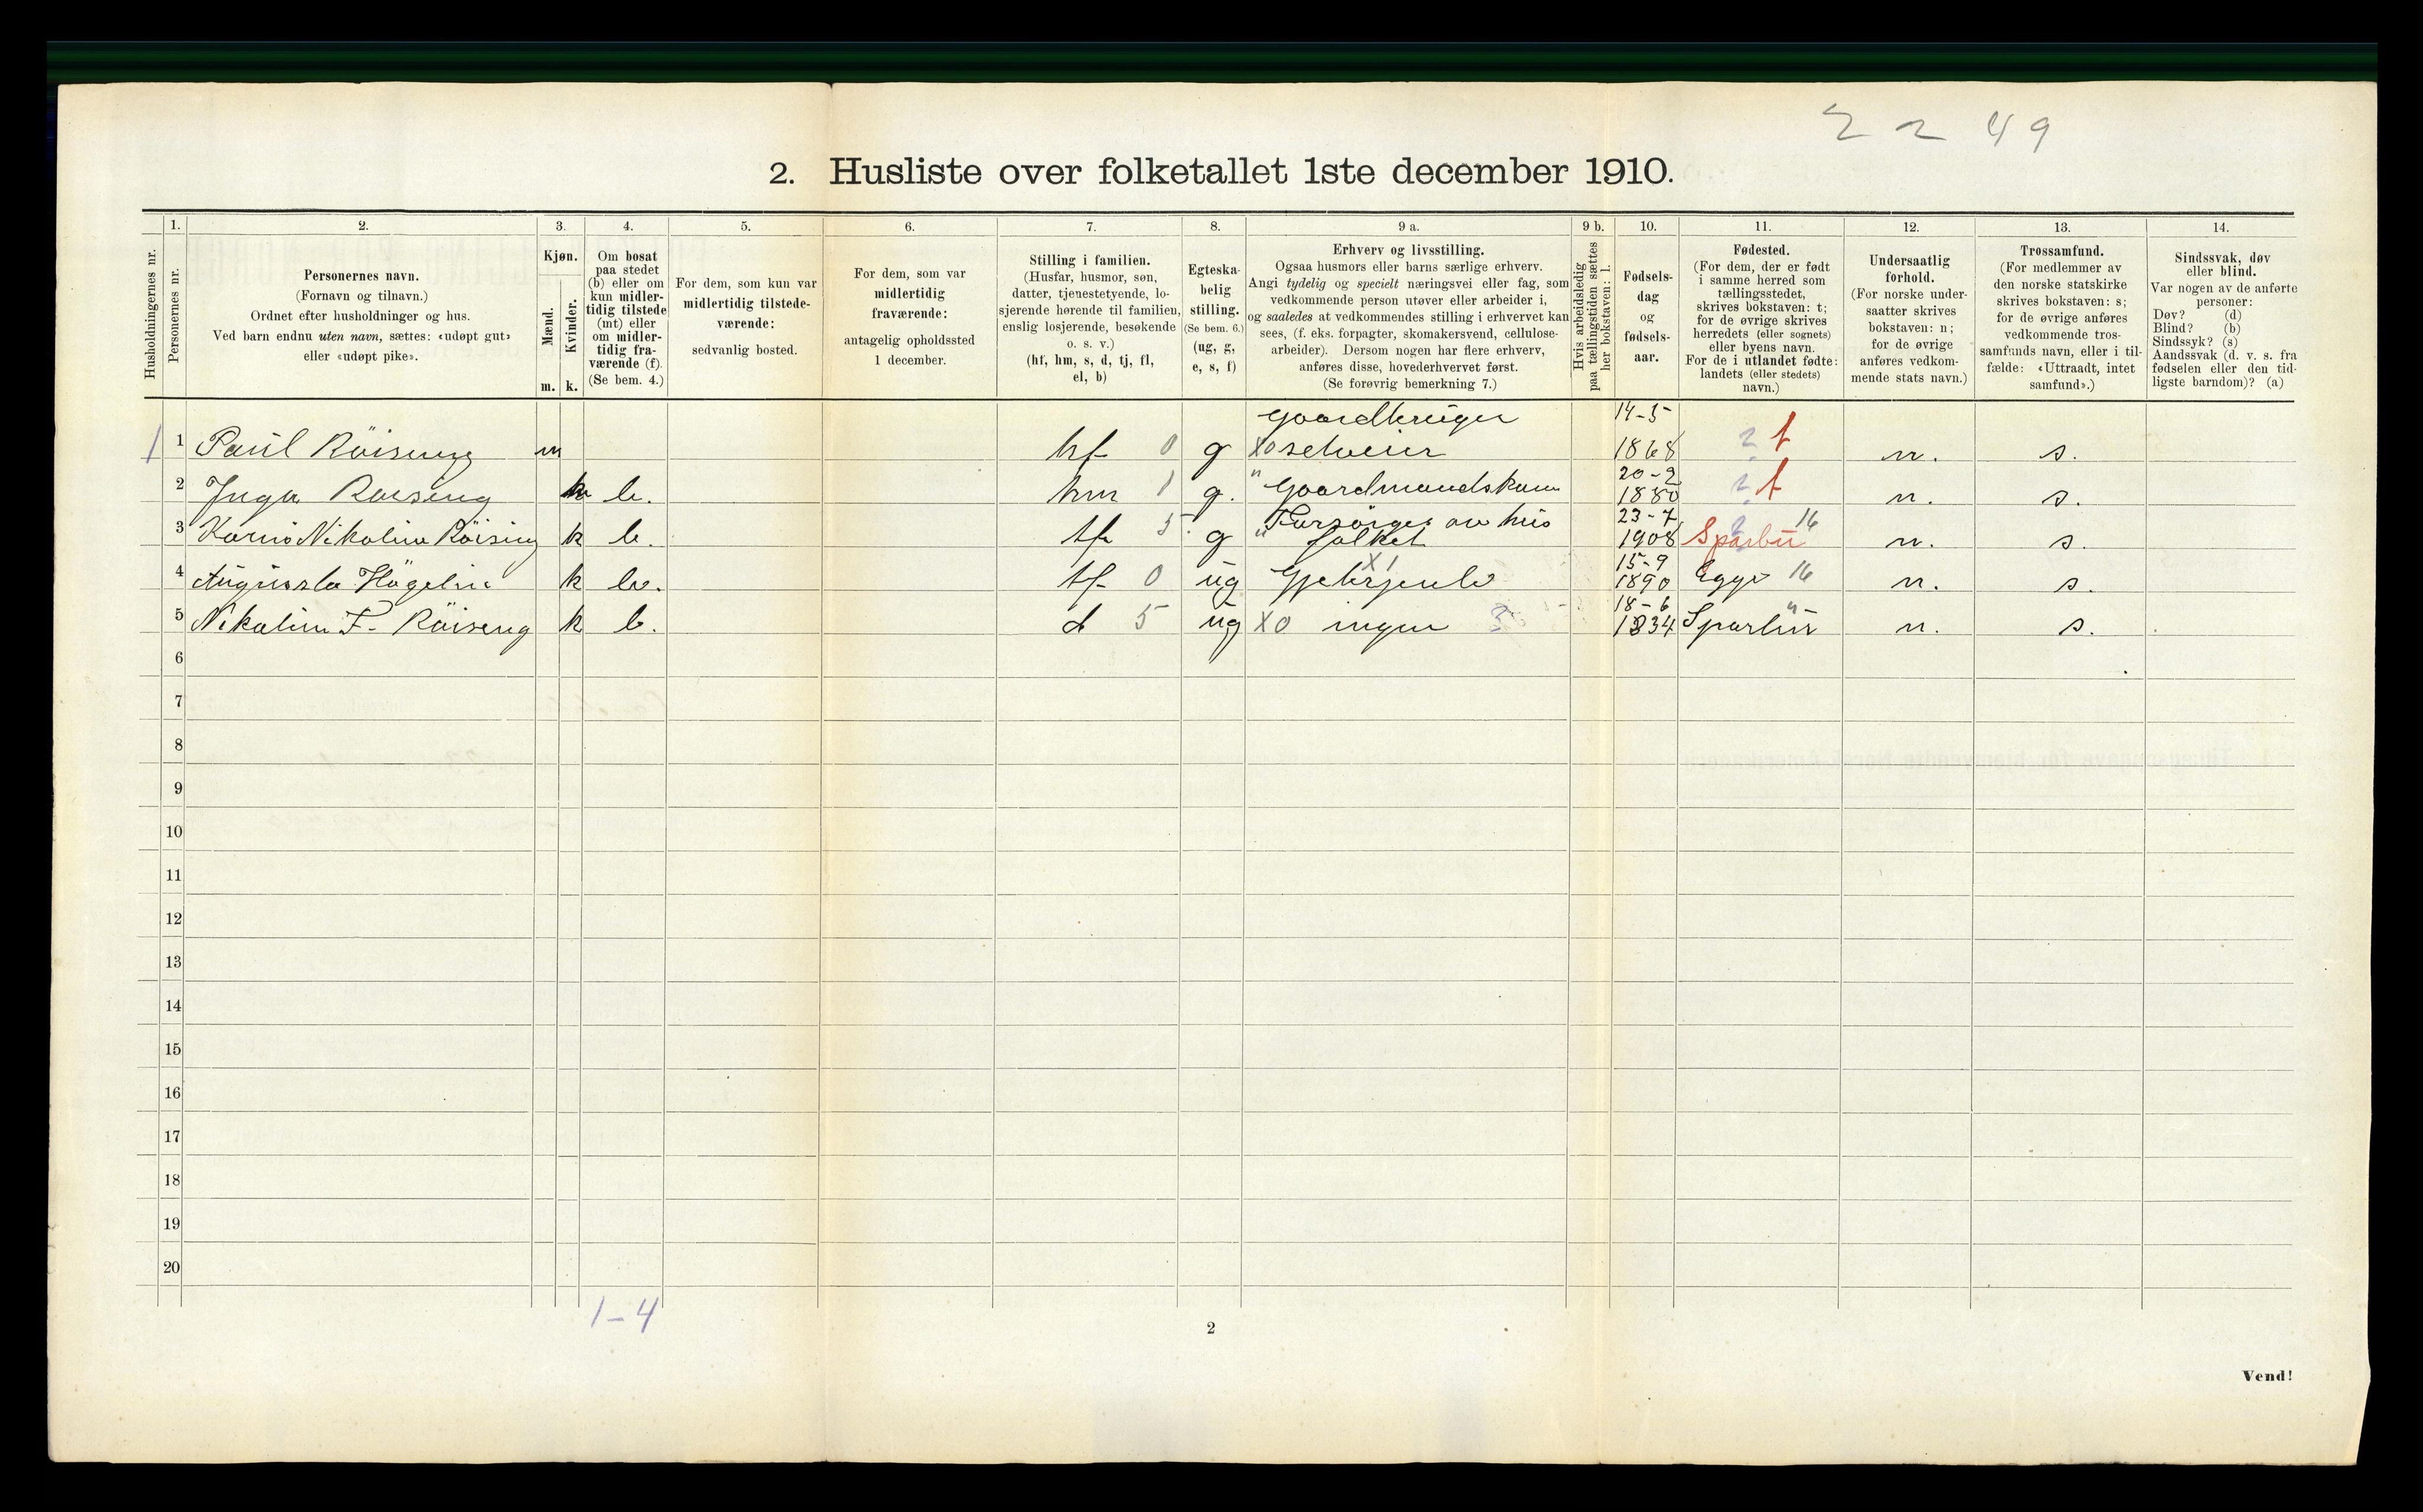 2 2 49
2. Husliste over folketallet 1ste december 1910.
1. 2. 3. 4. 5. 6. 7. 8. 9 a. 9 b. 10. 11. 12. 13. 14.
Husholdningernes nr.
Personernes nr.
Personernes navn.
(Fornavn og tilnavn.)
Ordnet efter husholdninger og hus.
Ved barn endnu uten navn, sættes: «udøpt gut»
eller «udøpt pike».
Kjøn.
Mænd.
Kvinder.
m. k.
Om bosat
paa stedet
(b) eller om
kun midler-
tidig tilstede
(mt) eller
om midler-
tidig fra-
værende (f).
(Se bem. 4.)
For dem, som kun var
midlertidig tilstede-
værende:
sedvanlig bosted.
For dem, som var
midlertidig
fraværende:
antagelig opholdssted
1 december.
Stilling i familien.
(Husfar, husmor, søn,
datter, tjenestetyende, lo-
sjerende hørende til familien,
enslig losjerende, besøkende
o. s. v.)
(hf, hm, s, d, tj, fl,
el, b)
Egteska-
belig
stilling.
(Se bem. 6.)
(ug, g,
e, s, f)
Erhverv og livsstilling.
Ogsaa husmors eller barns særlige erhverv.
Angi tydelig og specielt næringsvei eller fag, som
vedkommende person utøver eller arbeider i,
og saaledes at vedkommendes stilling i erhvervet kan
sees, (f. eks. forpagter, skomakersvend, cellulose-
arbeider). Dersom nogen har flere erhverv,
anføres disse, hovederhvervet først.
(Se forøvrig bemerkning 7.)
Hvis arbeidsledig
paa tællingstiden sættes
her bokstaven: l.
Fødsels-
dag
og
fødsels-
aar.
Fødested.
(For dem, der er født
i samme herred som
tællingsstedet,
skrives bokstaven: t;
for de øvrige skrives
herredets (eller sognets)
eller byens navn.
For de i utlandet fødte:
landets (eller stedets)
navn.)
Undersaatlig
forhold.
(For norske under-
saatter skrives
bokstaven: n;
for de øvrige
anføres vedkom-
mende stats navn.)
Trossamfund.
(For medlemmer av
den norske statskirke
skrives bokstaven: s;
for de øvrige anføres
vedkommende tros-
samfunds navn, eller i til-
fælde: «Uttraadt, intet
samfund».)
Sindssvak, døv
eller blind.
Var nogen av de anførte
personer:
Døv? (d)
Blind? (b)
Sindssyk? (s)
Aandssvak (d. v. s. fra
fødselen eller den tid-
ligste barndom)? (a)
14-5
1 1 Paul Röiseng m hf 0 g X0 selveier 1868 t n. s.
20-2
2 Inga Röiseng k b. hm 1 g. " Gaardmandskone 1880 t n. s.
23-7 16
3 Nikoline Röising k b. 5 g " folket 1908 Sparbu n. s.
15-9
4 Augusta k b. 0 ug X1 1890 Egge 16 n. s.
18-6 "
5 F. Röiseng k b. d 5 ug X0 ingen 1834 Sparbu n. s.
6
7
8
9
10
11
12
13
14
15
16
17
18
19
20
1-4
2
Vend!